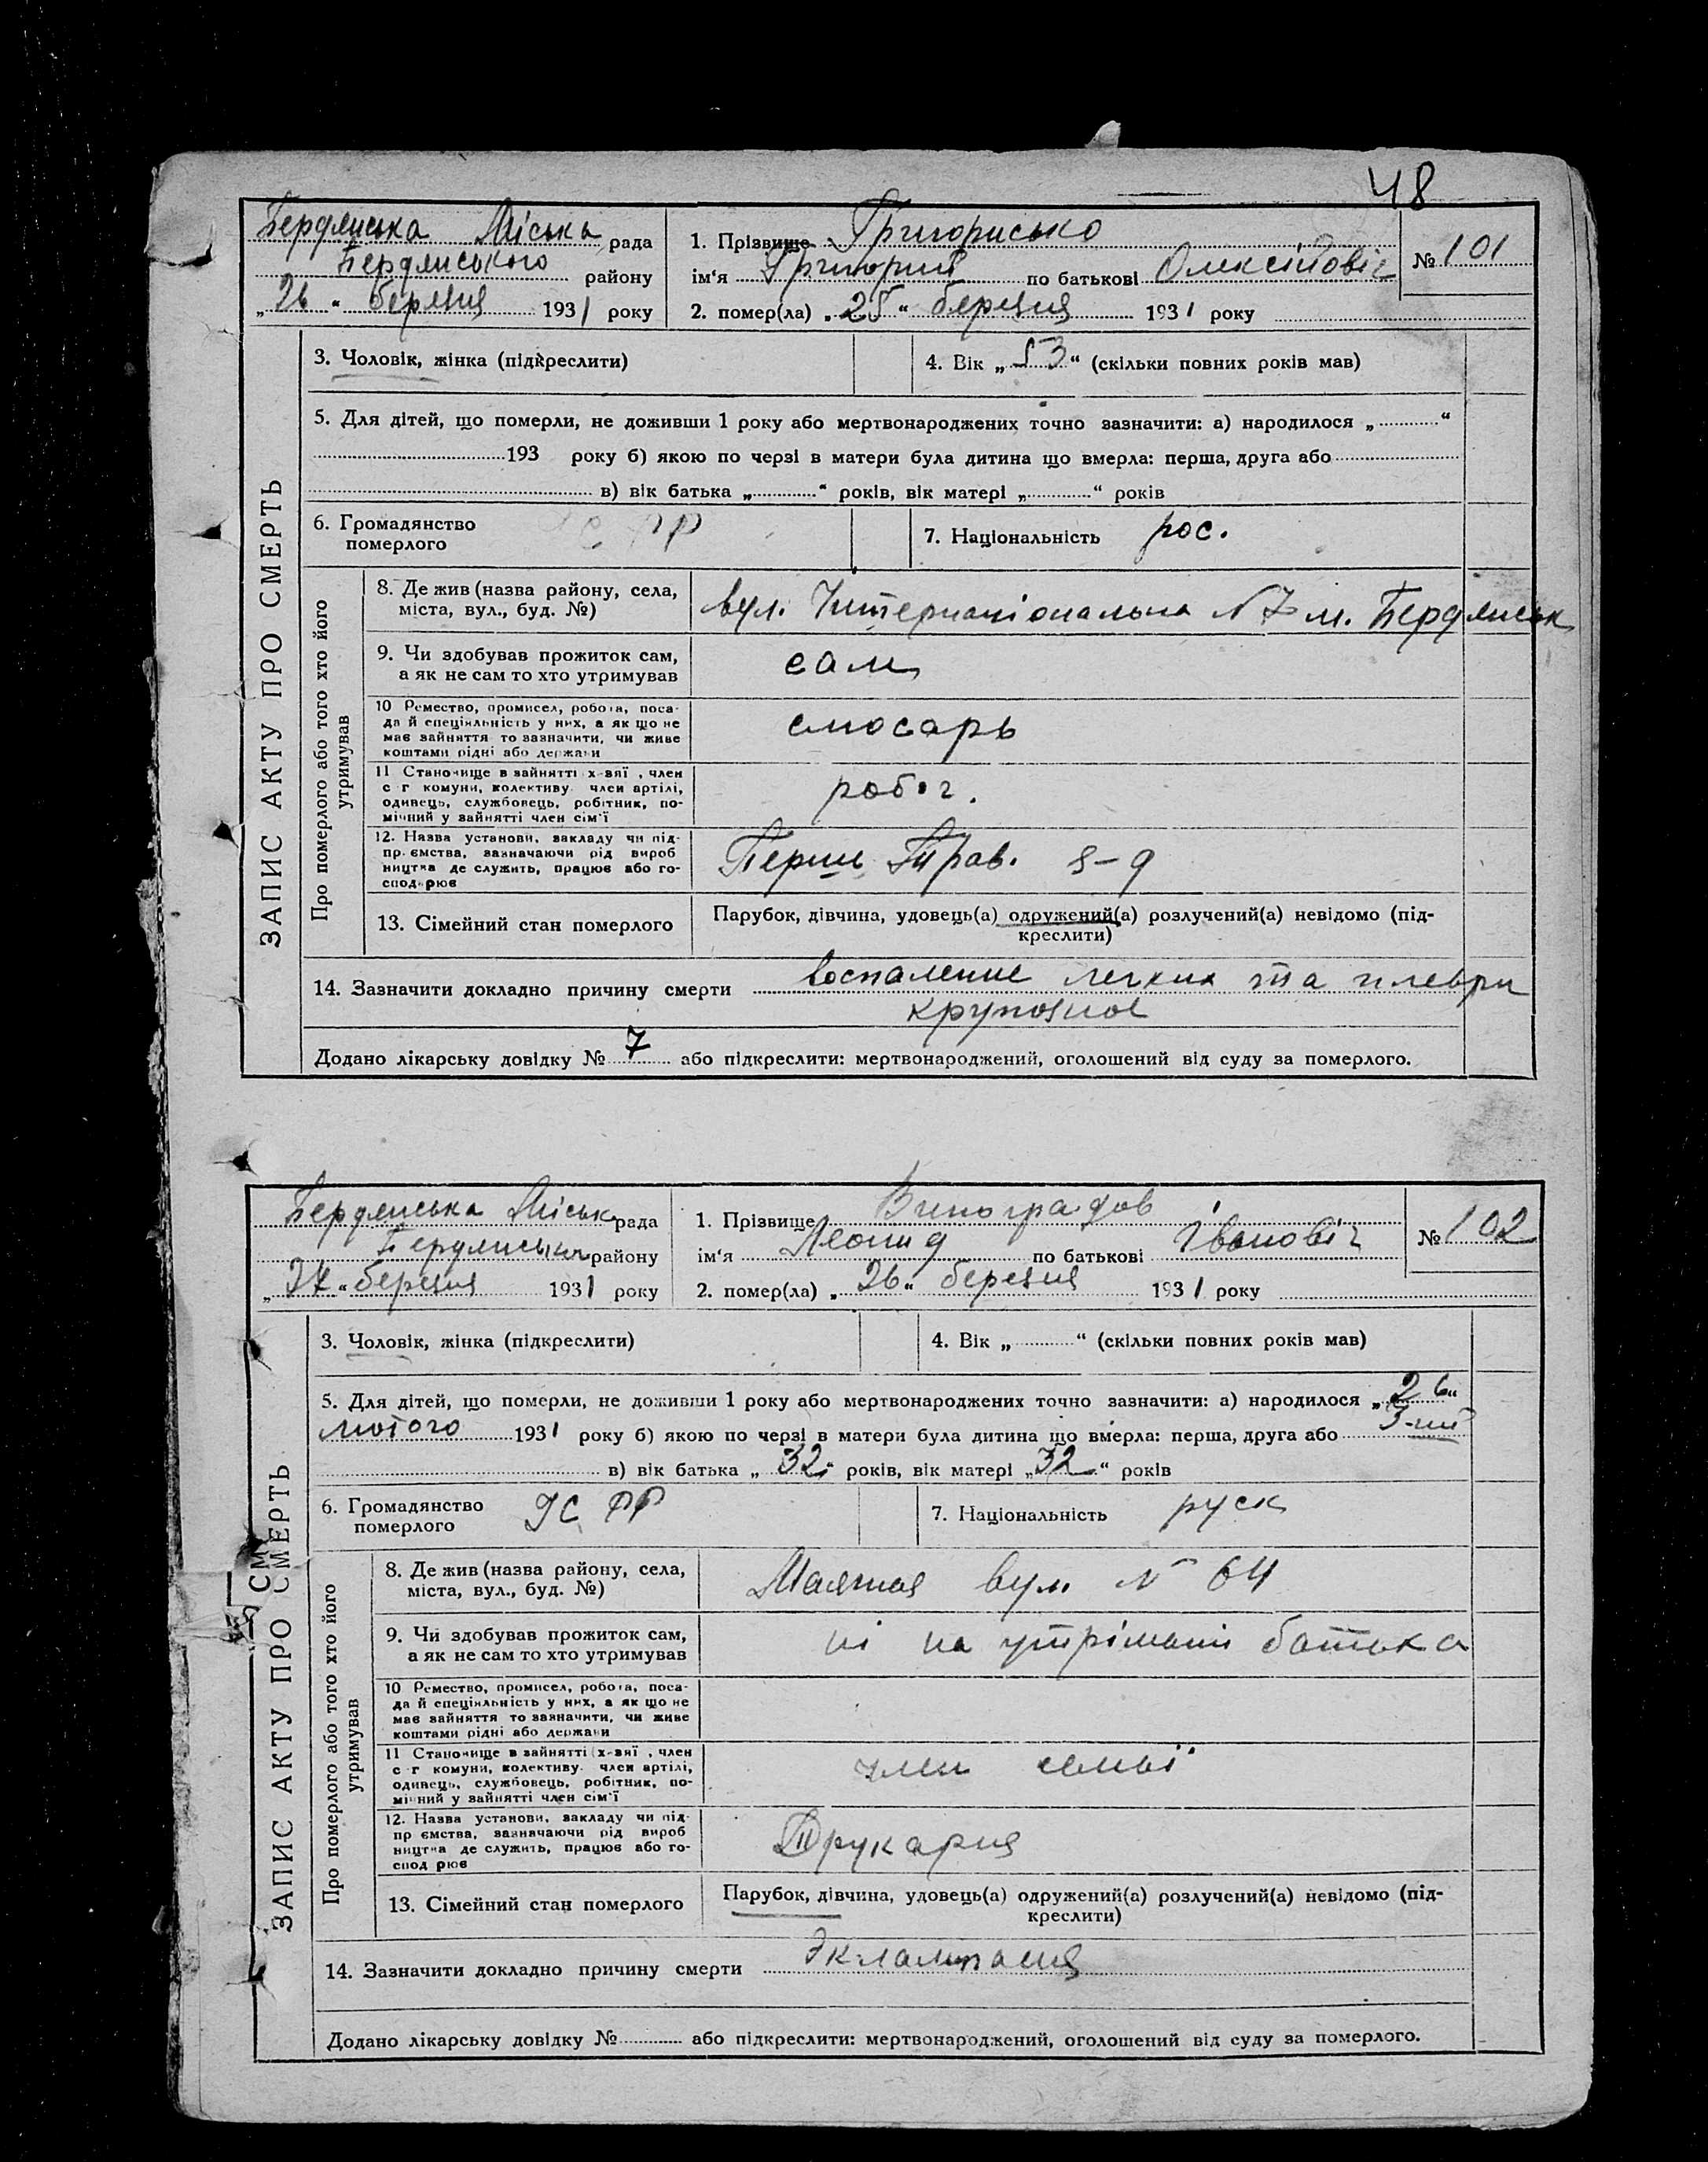 48
Бердянська Міська рада
Бердянського району
„26“ березня 1931 року
1. Прізвище Григорисько
ім'я Григорий по батькові Олексійовіч
№ 101
2. помер(ла) „25“ березня 1931 року
ЗАПИС АКТУ ПРО СМЕРТЬ
3. Чоловік, жінка (підкреслити)
4. Вік „53“ (скільки повних років мав)
5. Для дітей, що померли, не доживши 1 року або мертвонароджених точно зазначити: а) народилося „ “
193 року б) якою по черзі в матери була дитина що вмерла: перша, друга або
в) вік батька „ “ років, вік матері „ “ років
6. Громадянство
померлого
СРР
7. Національність рос.
Про померлого або того хто його
утримував
8. Де жив (назва району, села,
міста, вул., буд. №)
вул. Інтернаціональна N 7 м. Бердянськ
9. Чи здобував прожиток сам,
а як не сам то хто утримував
сам
10 Ремество, промисел, робота, поса-
да й спеціяльність у них, а як що не
має зайняття то зазначити, чи живе
коштами рідні або держави
слюсарь
11 Становище в зайнятті х-вяї, член
с г комуни, колективу член артілі,
одинець, службовець, робітник, по-
мічний у зайнятті член сім'ї
робіт.
12. Назва установи, закладу чи під-
пр ємства, зазначаючи рід вироб
ництва де служить, працює або го-
сподарює
Перш. Трав. з-д
13. Сімейний стан померлого
Парубок, дівчина, удовець(а) одружений(а) розлучений(а) невідомо (під-
креслити)
14. Зазначити докладно причину смерти воспаление легких та плеври
крупозное
Додано лікарську довідку № 7 або підкреслити: мертвонароджений, оголошений від суду за померлого.
Бердянська Міськ рада
району
„27“ березня 1931 року
1. Прізвище Виноградов
ім'я Леонид по батькові Івановіч
№ 102
2. помер(ла) „26“ березня 1931 року
ЗАПИС АКТУ ПРО СМЕРТЬ
СМ
3. Чоловік, жінка (підкреслити)
4. Вік „ “ (скільки повних років мав)
5. Для дітей, що померли, не доживши 1 року або мертвонароджених точно зазначити: а) народилося „26“
лютого 1931 року б) якою по черзі в матери була дитина що вмерла: перша, друга або 3-ий
в) вік батька „32“ років, вік матері „32“ років
6. Громадянство
померлого
УСРР
7. Національність руск
Про померлого або того хто його
утримував
8. Де жив (назва району, села,
міста, вул., буд. №)
Маячная вул. N 64
9. Чи здобував прожиток сам,
а як не сам то хто утримував
ні на утріманні батька
10 Ремество, промисел, робота, поса-
да й спеціяльність у них, а як що не
має зайняття то зазначити, чи живе
коштами рідні або держави
11 Становище в зайнятті х-вяї, член
с г комуни, колективу член артілі,
одинець, службовець, робітник, по-
мічний у зайнятті член сім'ї
член семьї
12. Назва установи, закладу чи під-
пр ємства, зазначаючи рід вироб
ництва де служить, працює або го-
спод рює
Друкарня
13. Сімейний стан померлого
Парубок, дівчина, удовець(а) одружений(а) розлучений(а) невідомо (під-
креслити)
14. Зазначити докладно причину смерти Эклампсия
Додано лікарську довідку № або підкреслити: мертвонароджений, оголошений від суду за померлого.